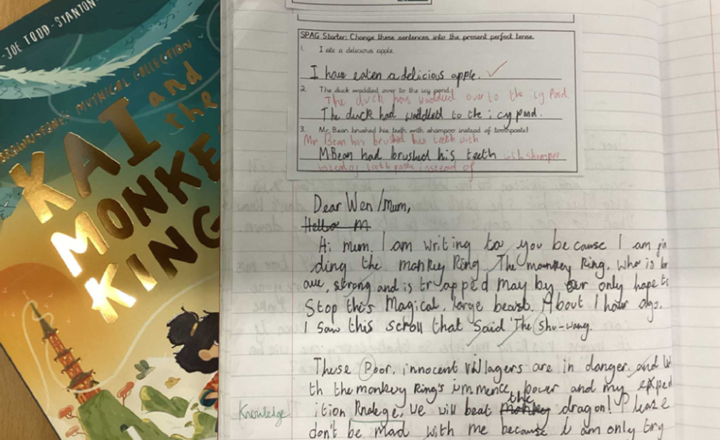 JOE TODD-STANTON
BROWNSTONE'S MYTHICAL COLLECTION
KAI and
the
MONKE
KING
SPAG Starter: Change these sentences into the present perfect tense.
1. I ate a delicious apple.
I have eaten a delicious apple. ✓
2. The duck waddled over to the icy pond.
The duck has waddled over to the icy pond.
The duck had waddled to the icy pond.
3. Mr. Bean brushed his teeth with shampoo instead of toothpaste!
Mr Bean has brushed his teeth with
MBean had brushed his teeth with shampoo
instead of
Dear Wen/Mum,
Hello m
Hi mum, I am writing to you because I am fin
ding the monkey King. The monkey King, who is br
ave, strong and is trapped may by our only hope to
Stop this Magical, large beast. About 1 hour ago,
I saw this scroll that said 'The Shu-wang.
These Poor, innocent villagers are in danger and wi
th the monkey King's immence power and my exped
ition Knolege, we will beat the monkey dragon! Please
Knowledge
don't be mad with me because I am only try